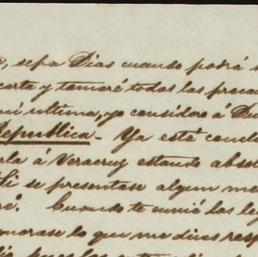 , sepa Dios cuando podré
carta y tomaré todas las preca
ultima, yo considero á Du
Republica_ Ya está condu
rla á Veracruz estando absol
Si se presentase algun me
ré. Cuando te envió las le
morase lo que me dices resp